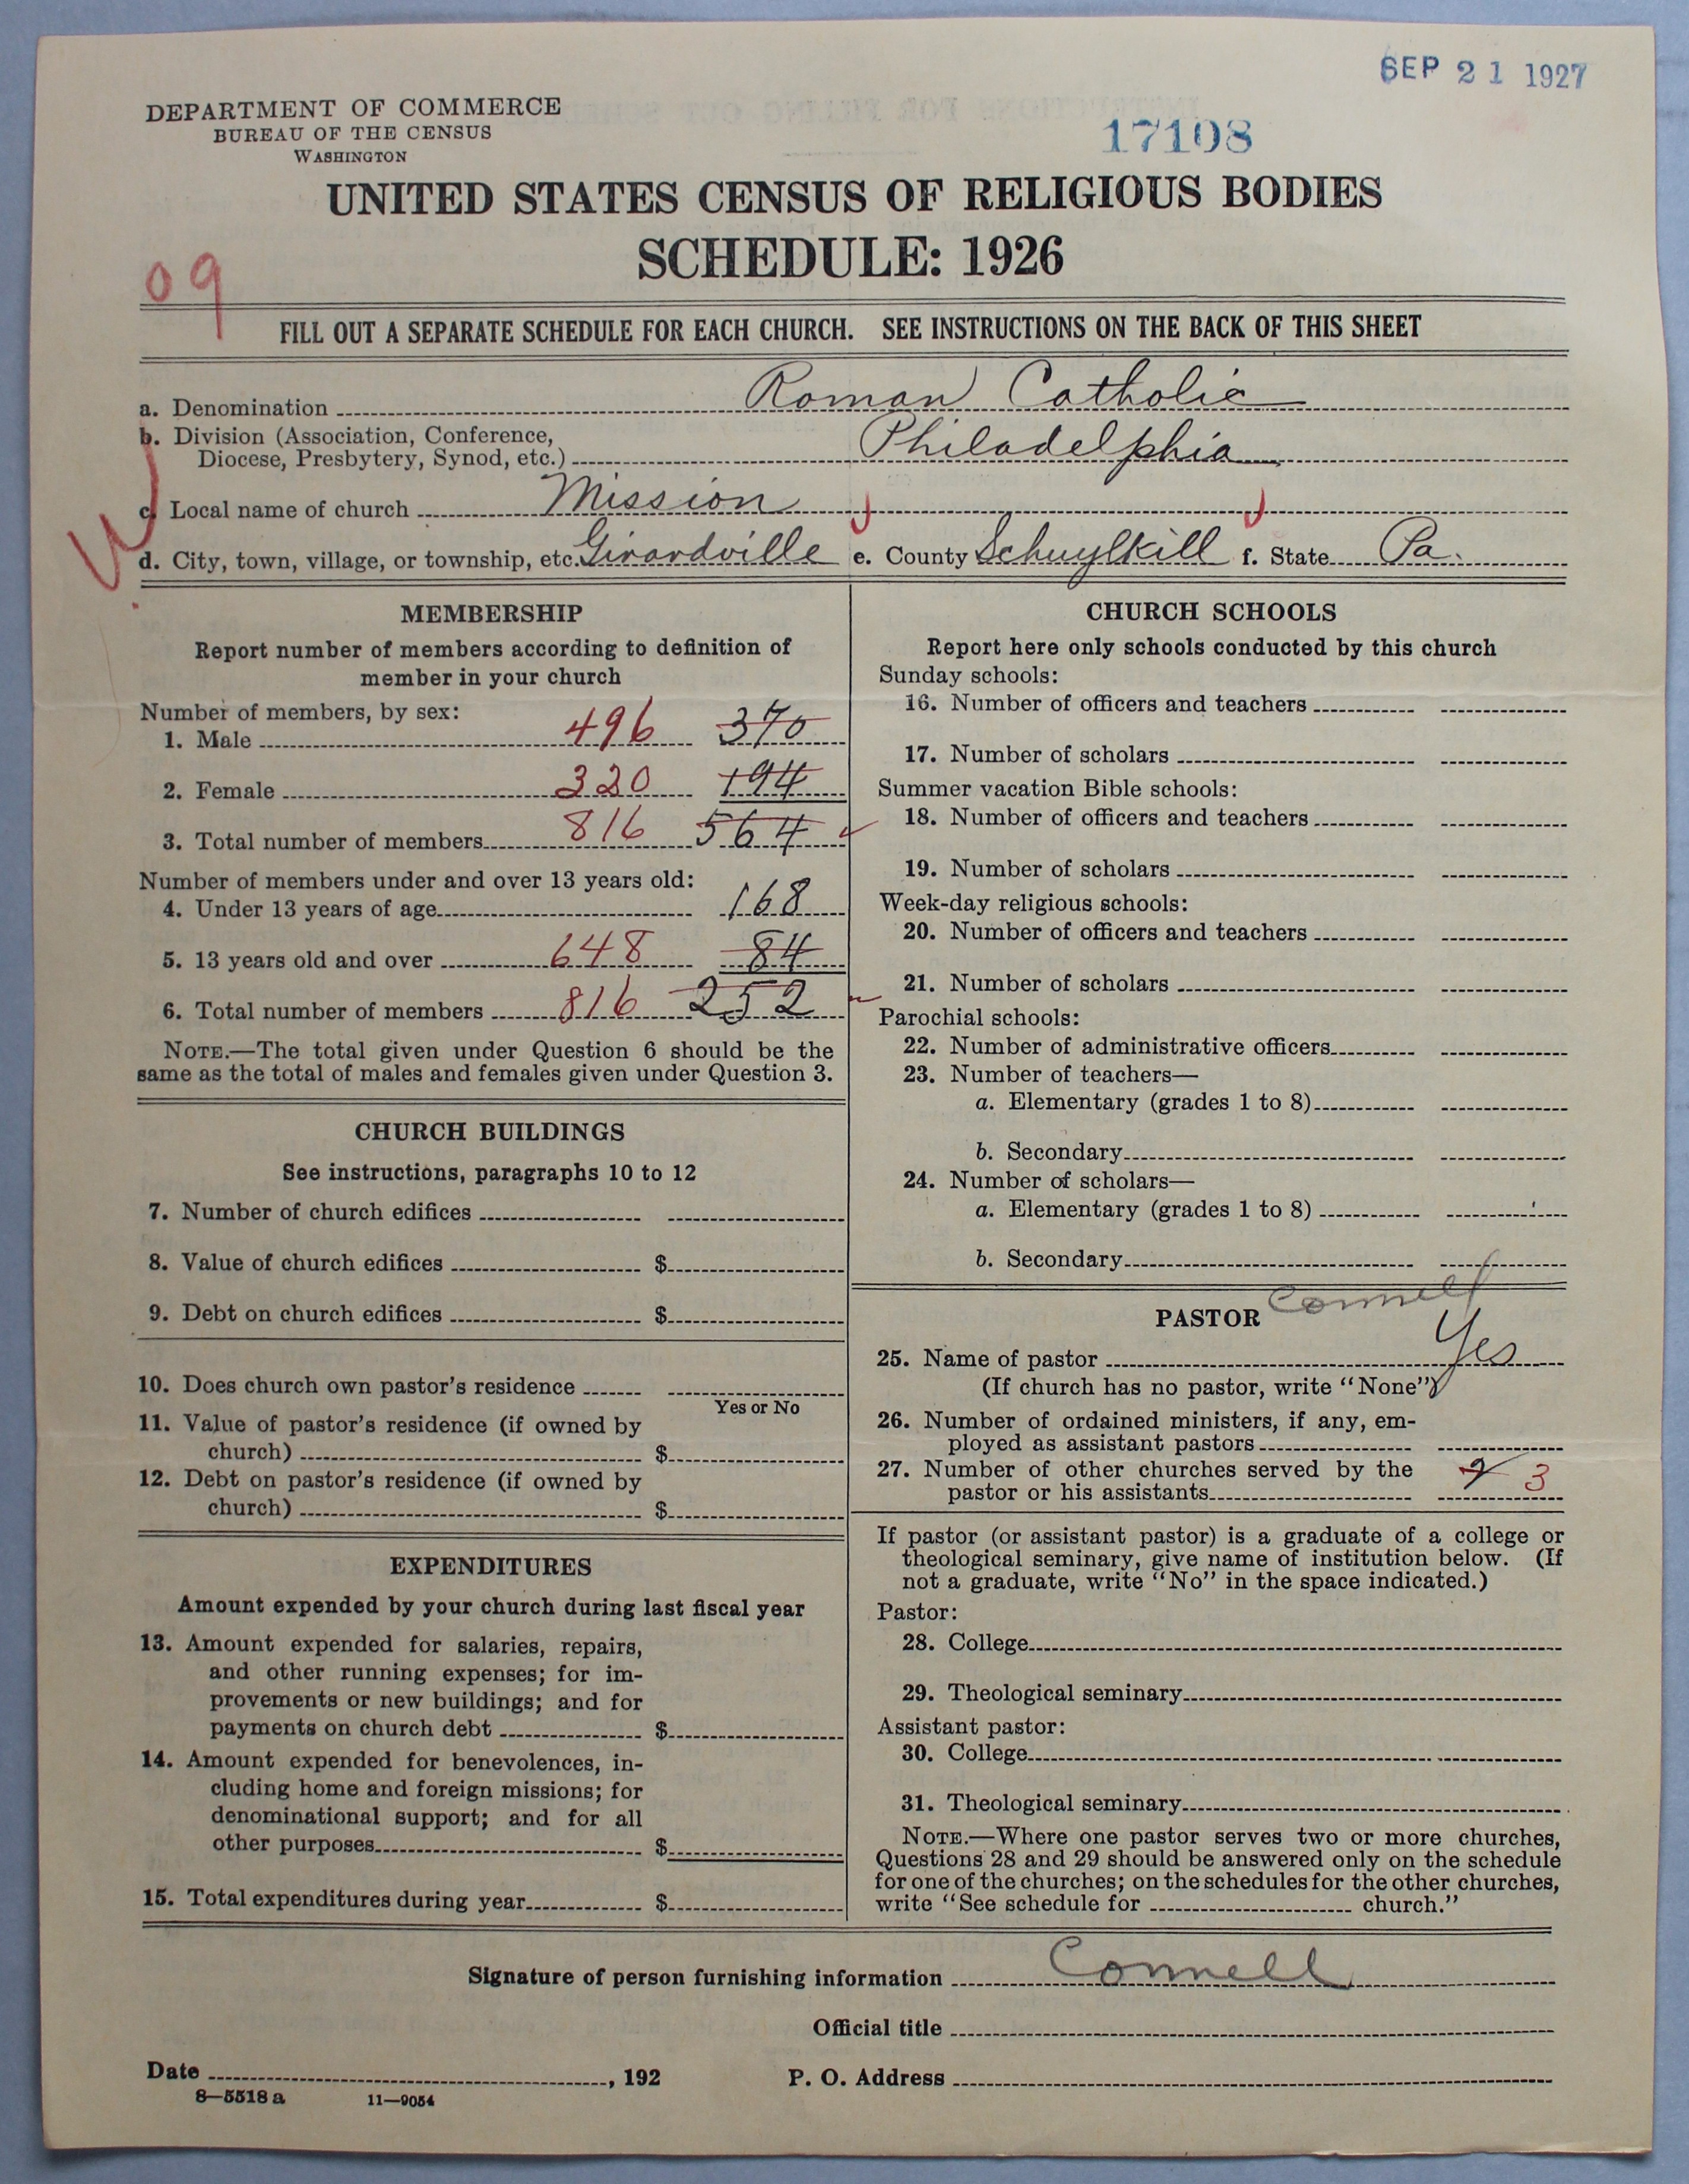 SEP 21 1927
DEPARTMENT OF COMMERCE
BUREAU OF THE CENSUS
WASHINGTON
17108
UNITED STATES CENSUS OF RELIGIOUS BODIES
SCHEDULE: 1926
09
FILL OUT A SEPARATE SCHEDULE FOR EACH CHURCH. SEE INSTRUCTIONS ON THE BACK OF THIS SHEET
a. Denomination Roman Catholic
b. Division (Association, Conference,
Diocese, Presbytery, Synod, etc.) Philadelphia
c. Local name of church Mission
d. City, town, village, or township, etc. Girardville e. County Schuylkill f. State Pa.
MEMBERSHIP
Report number of members according to definition of
member in your church
Number of members, by sex:
1. Male 496 370
2. Female 320 194
3. Total number of members 816 564
Number of members under and over 13 years old:
4. Under 13 years of age 168
5. 13 years old and over 648 84
6. Total number of members 816 252
NOTE.—The total given under Question 6 should be the
same as the total of males and females given under Question 3.
CHURCH BUILDINGS
See instructions, paragraphs 10 to 12
7. Number of church edifices
8. Value of church edifices $
9. Debt on church edifices $
10. Does church own pastor's residence
Yes or No
11. Value of pastor's residence (if owned by
church) $
12. Debt on pastor's residence (if owned by
church) $
EXPENDITURES
Amount expended by your church during last fiscal year
13. Amount expended for salaries, repairs,
and other running expenses; for im-
provements or new buildings; and for
payments on church debt $
14. Amount expended for benevolences, in-
cluding home and foreign missions; for
denominational support; and for all
other purposes $
15. Total expenditures during year $
CHURCH SCHOOLS
Report here only schools conducted by this church
Sunday schools:
16. Number of officers and teachers
17. Number of scholars
Summer vacation Bible schools:
18. Number of officers and teachers
19. Number of scholars
Week-day religious schools:
20. Number of officers and teachers
21. Number of scholars
Parochial schools:
22. Number of administrative officers
23. Number of teachers—
a. Elementary (grades 1 to 8)
b. Secondary
24. Number of scholars—
a. Elementary (grades 1 to 8)
b. Secondary
PASTOR Connell
25. Name of pastor Yes
(If church has no pastor, write "None")
26. Number of ordained ministers, if any, em-
ployed as assistant pastors
27. Number of other churches served by the
pastor or his assistants 2 3
If pastor (or assistant pastor) is a graduate of a college or
theological seminary, give name of institution below. (If
not a graduate, write "No" in the space indicated.)
Pastor:
28. College
29. Theological seminary
Assistant pastor:
30. College
31. Theological seminary
NOTE.—Where one pastor serves two or more churches,
Questions 28 and 29 should be answered only on the schedule
for one of the churches; on the schedules for the other churches,
write "See schedule for church."
Signature of person furnishing information Connell
Official title
Date , 192 P. O. Address
8—5518 a 11—9054